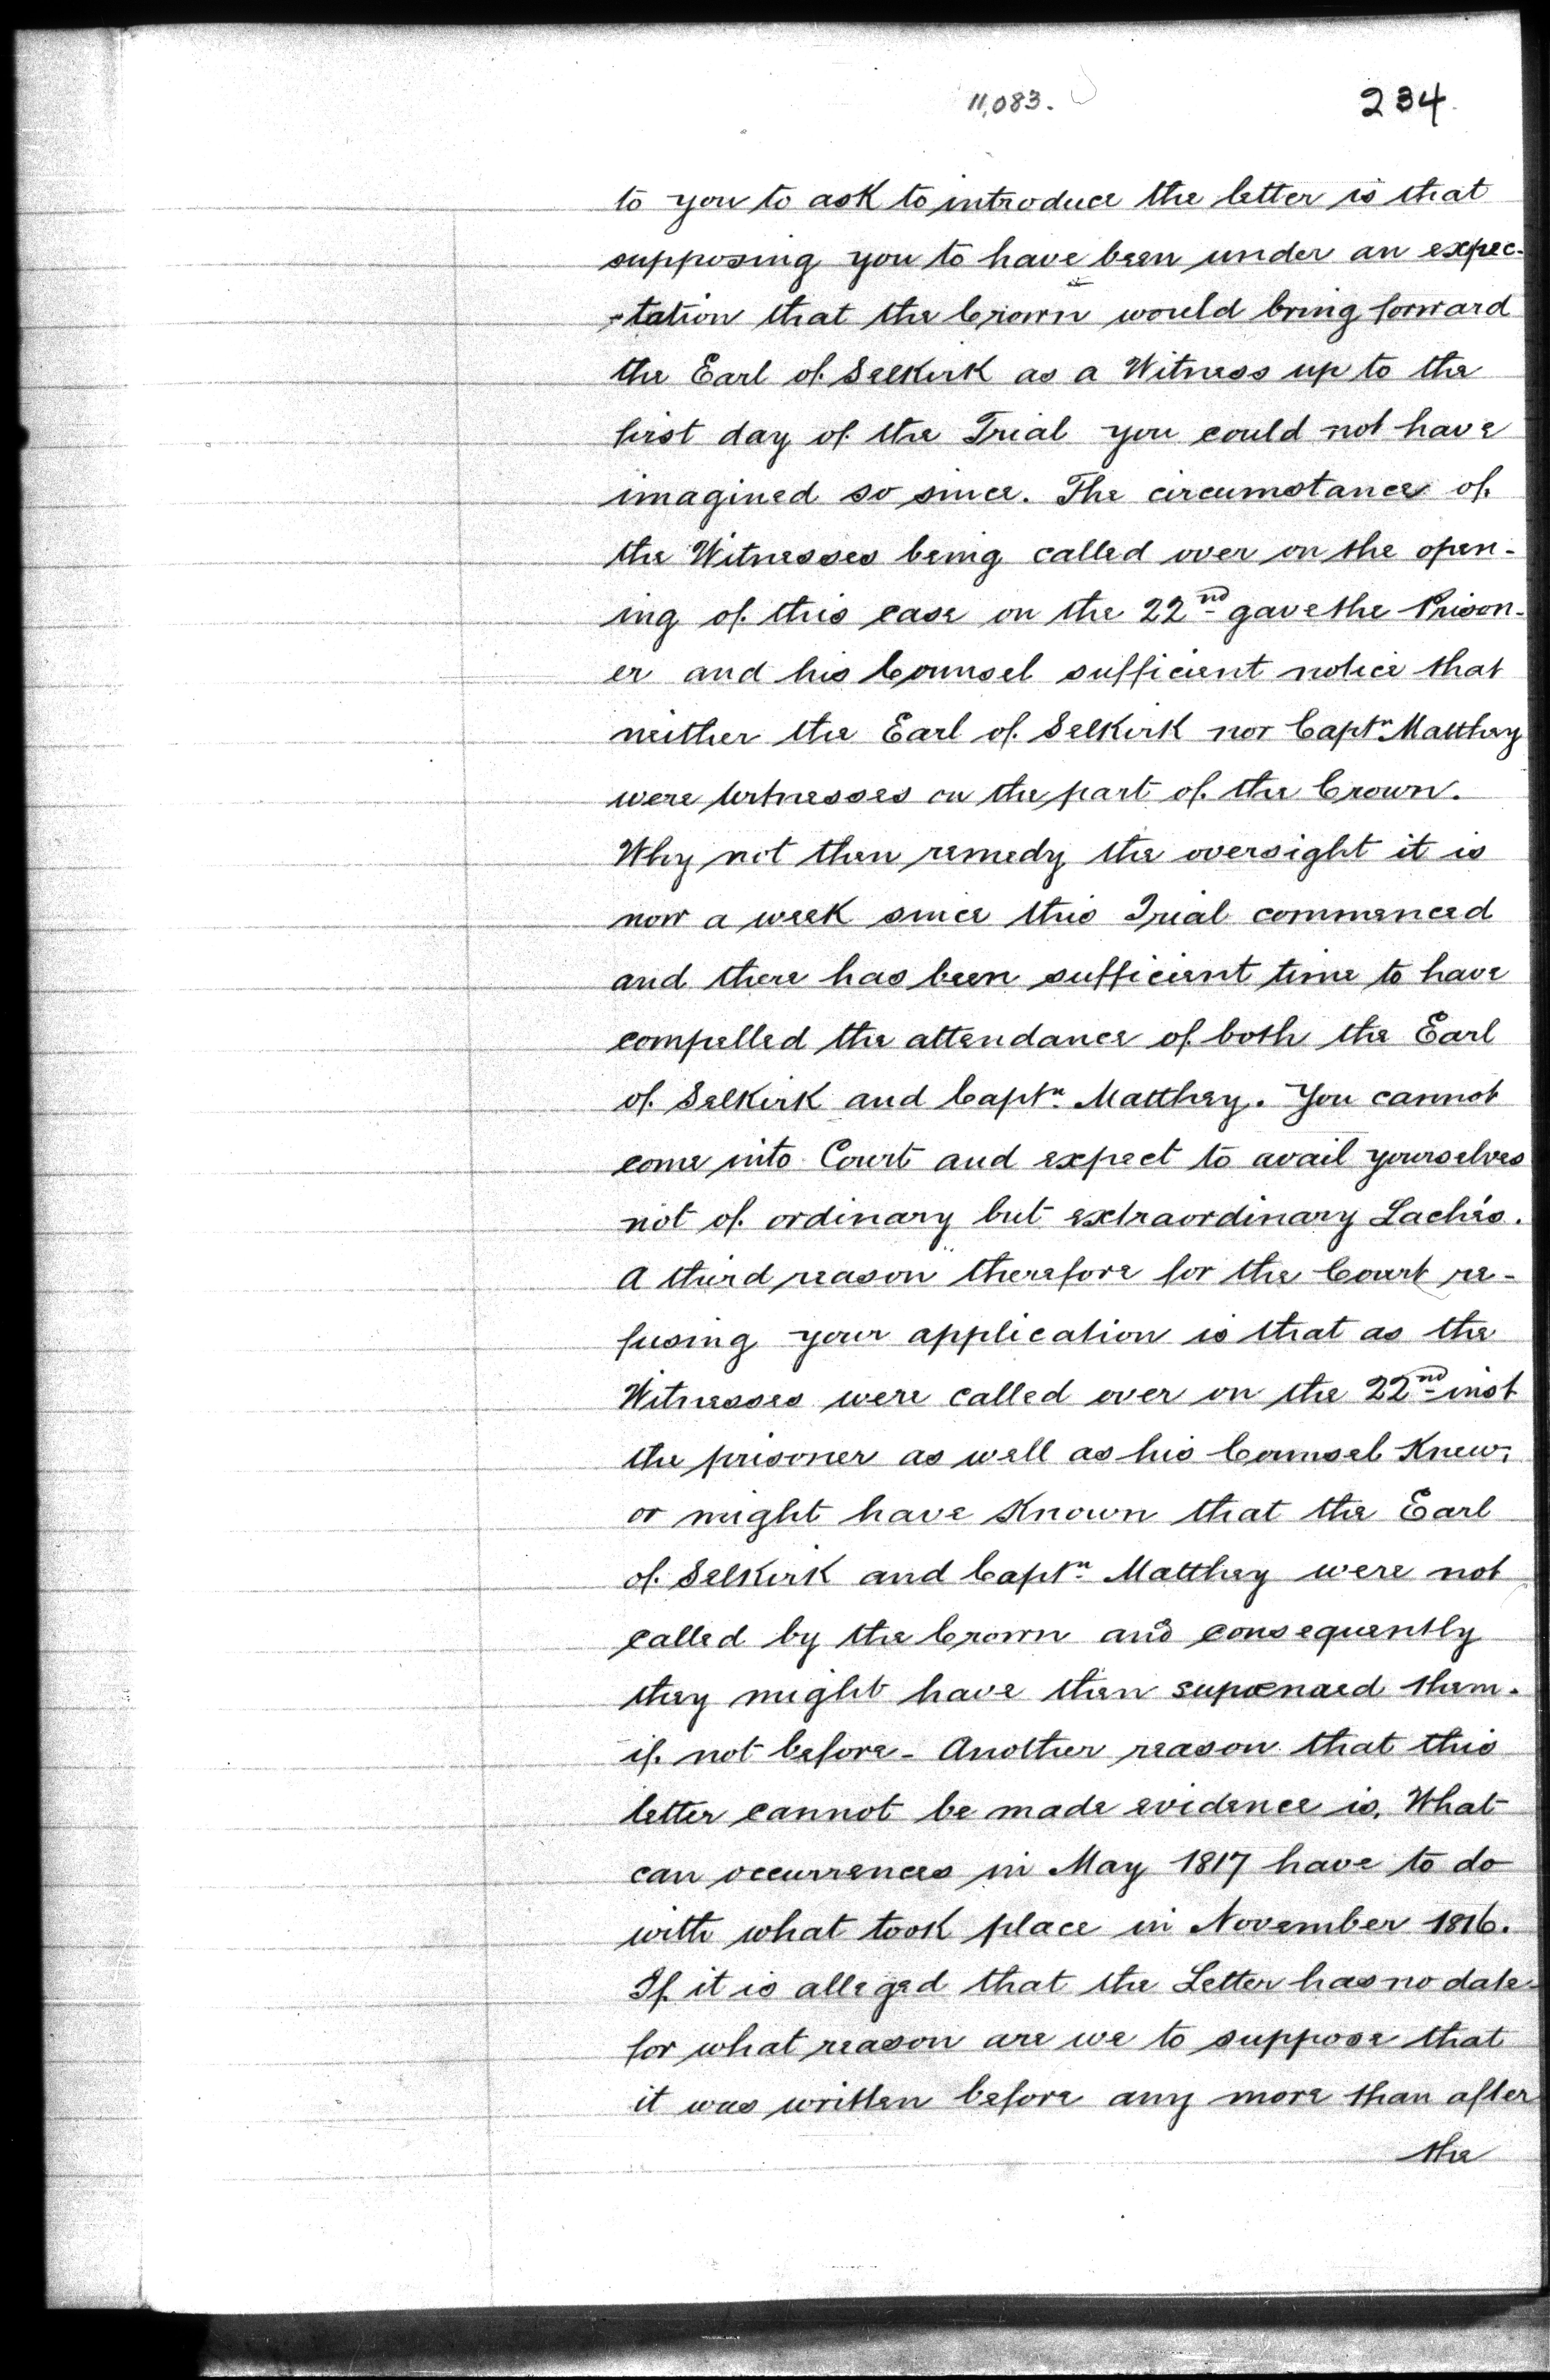 11,083.
234.
to you to ask to introduce the letter is that
supposing you to have been under an expec-
-tation that the Crown would bring forward
the Earl of Selkirk as a Witness up to the
first day of the Trial you could not have
imagined so since. The circumstance of
the Witnesses being called over on the open-
ing of this case on the 22nd gave the Prison-
er and his Counsel sufficient notice that
neither the Earl of Selkirk nor Captn Matthey
were Witnesses on the part of the Crown.
Why not then remedy the oversight it is
now a week since this Trial commenced
and there has been sufficient time to have
compelled the attendance of both the Earl
of Selkirk and Captn Matthey. You cannot
come into Court and expect to avail yourselves
not of ordinary but extraordinary Lachés.
A third reason therefore for the Court re-
fusing your application is that as the
Witnesses were called over on the 22nd inst
the prisoner as well as his Counsel Knew,
or might have Known that the Earl
of Selkirk and Captn Matthey were not
called by the Crown and consequently
they might have then supœnaed them.
if not before - Another reason that this
letter cannot be made evidence is. What
can occurrences in May 1817 have to do
with what took place in November 1816.
If it is alleged that the Letter has no date
for what reason are we to suppose that
it was written before any more than after
the